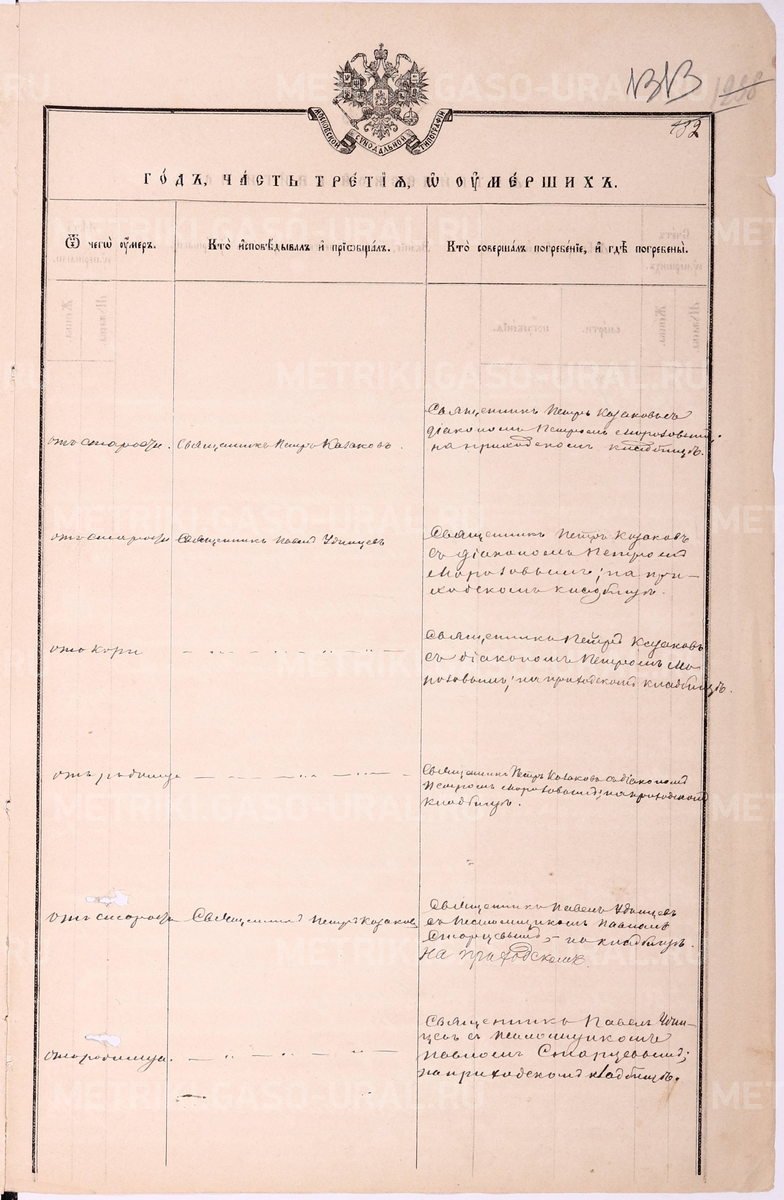 1288
132
МОСКОВСКОЙ СѴНОДАЛЬНОЙ ТИПОГРАФІИ
ГО́ДЪ, ЧА́СТЬ ТРЕ́ТІѦ, Ѡ҆ ОУ҆МЕ́РШИХЪ.
Ѿ чегѡ̀ оу҆́меръ.
Кто̀ и҆сповѣ́дывалъ и҆ прїѡбща́лъ.
Кто̀ соверша́лъ погребе́нїе, и҆ гдѣ̀ погребены̀.
отъ старости.
Священникъ Петръ Казаковъ.
Священникъ Петръ Казаковъ съ
діакономъ Петромъ Морозовымъ;
на приходскомъ кладбищѣ.
отъ старости
Священникъ Павелъ Удинцевъ
Священникъ Петръ Казаковъ
съ діакономъ Петромъ
Морозовымъ; на при-
ходскомъ кладбищѣ.
отъ кори
Священникъ Петръ Казаковъ
съ діакономъ Петромъ Мо
розовымъ; на приходскомъ кладбищѣ.
отъ родимца
Священникъ Петръ Казаковъ съ діакономъ
Петромъ Морозовымъ; на приходскомъ
кладбищѣ.
отъ старости
Священникъ Петръ Казаковъ
Священникъ Павелъ Удинцевъ
съ псаломщикомъ Павломъ
Старцевымъ – на кладбищѣ.
на приходскомъ.
отъ родимца.
Священникъ Павелъ Удин-
цевъ съ псаломщикомъ
Павломъ Старцевымъ;
на приходскомъ кладбищѣ.
METRIKI.GASO-URAL.RU